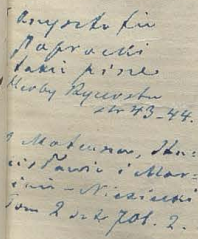 Krysztofie
Paprocki
takie pisze
Herby Rycerstw
str 43-44.
Mateusza, Sta-
nisława i Mar-
cina - Niesiecki
Tom 2 str 701. 2.